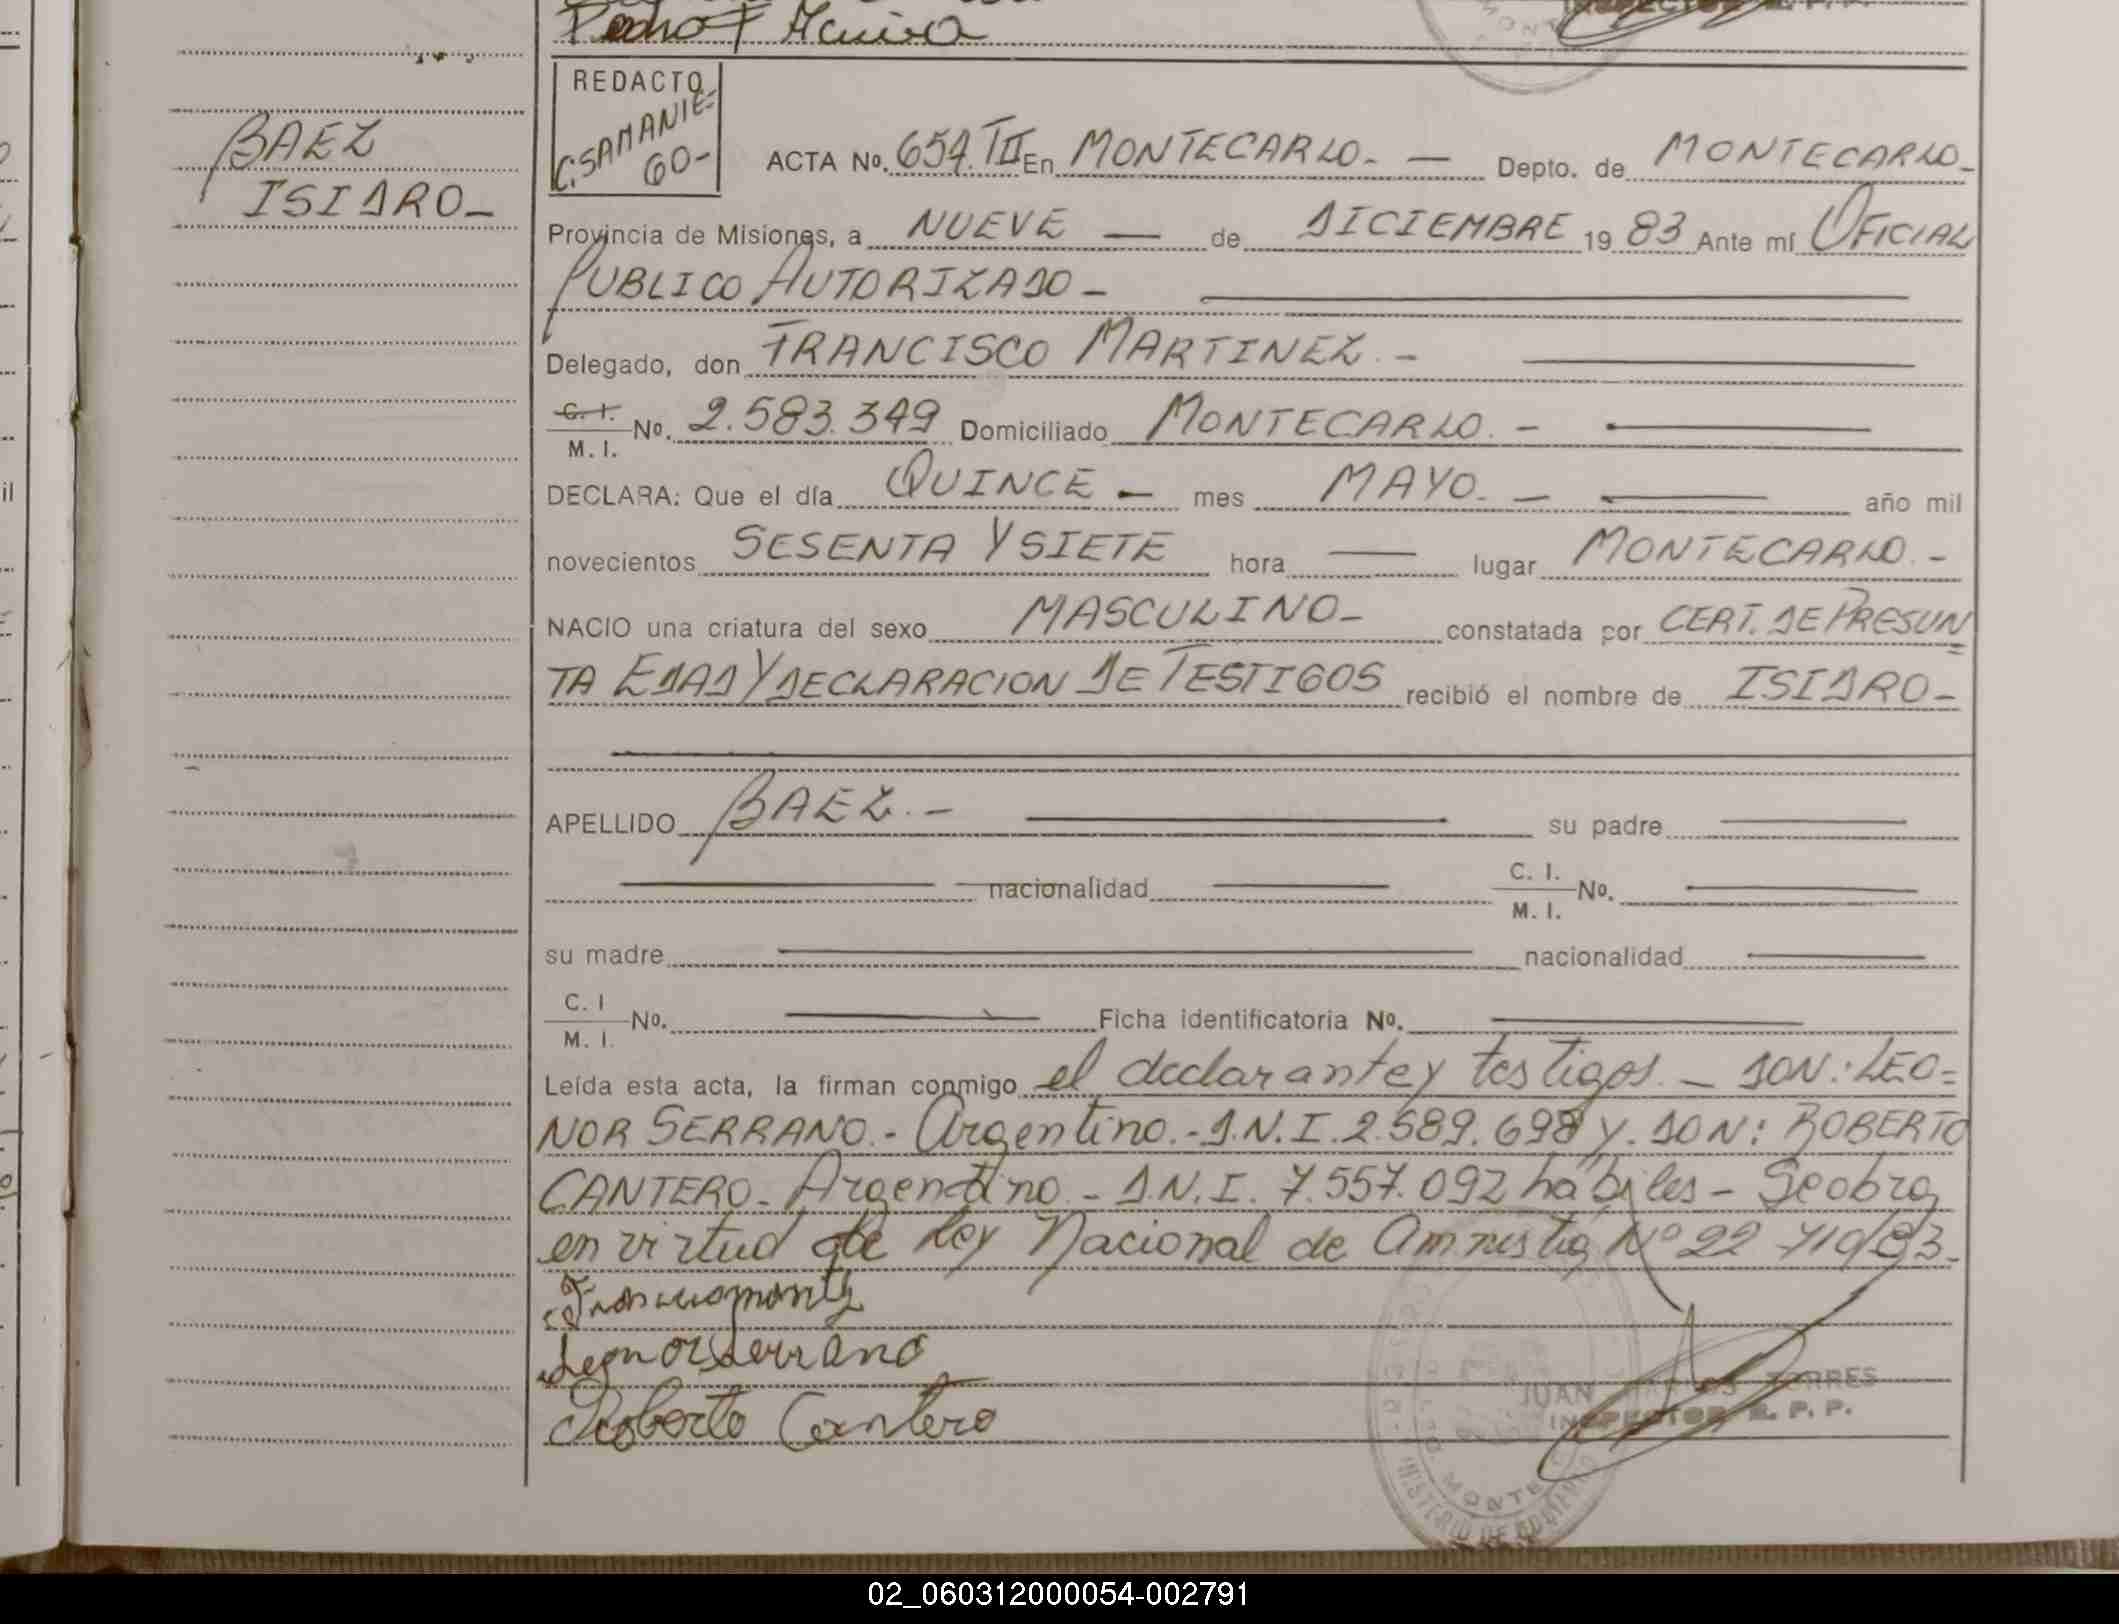 Pedro F
INSPECTOR R. P. P.
REDACTO
C. SAMANIE=
GO-
BAEZ
ISIDRO-
ACTA No. 654. TII En MONTECARLO. - Depto. de MONTECARLO-
Provincia de Misiones, a NUEVE — de DICIEMBRE 19 83 Ante mí OFICIAL
PUBLICO AUTORIZADO -
Delegado, don FRANCISCO MARTINEZ. -
C. I. / M. I. No. 2.583.349 Domiciliado MONTECARLO. -
DECLARA: Que el día QUINCE - mes MAYO. - año mil
novecientos SESENTA Y SIETE hora — lugar MONTECARLO. -
NACIO una criatura del sexo MASCULINO- constatada por CERT. DE PRESUN=
TA EDAD Y DECLARACION DE TESTIGOS recibió el nombre de ISIDRO-
APELLIDO BAEZ. - su padre
nacionalidad C. I. / M. I. No.
su madre nacionalidad
C. I / M. I. No. Ficha identificatoria No.
Leída esta acta, la firman conmigo el declarante y testigos. - DON: LEO=
NOR SERRANO. - Argentino. - D.N.I. 2.589.698 y. DON: ROBERTO
CANTERO - Argentino - D.N.I. 7.557.092 hábiles - Se obra
en virtud de Ley Nacional de Amnistia Nº 22 710/83.
Leonor Serrano
Roberto Cantero
JUAN TORRES
INSPECTOR R. P. P.
MONTE
MINISTERIO DE GOBIERNO
02_060312000054-002791